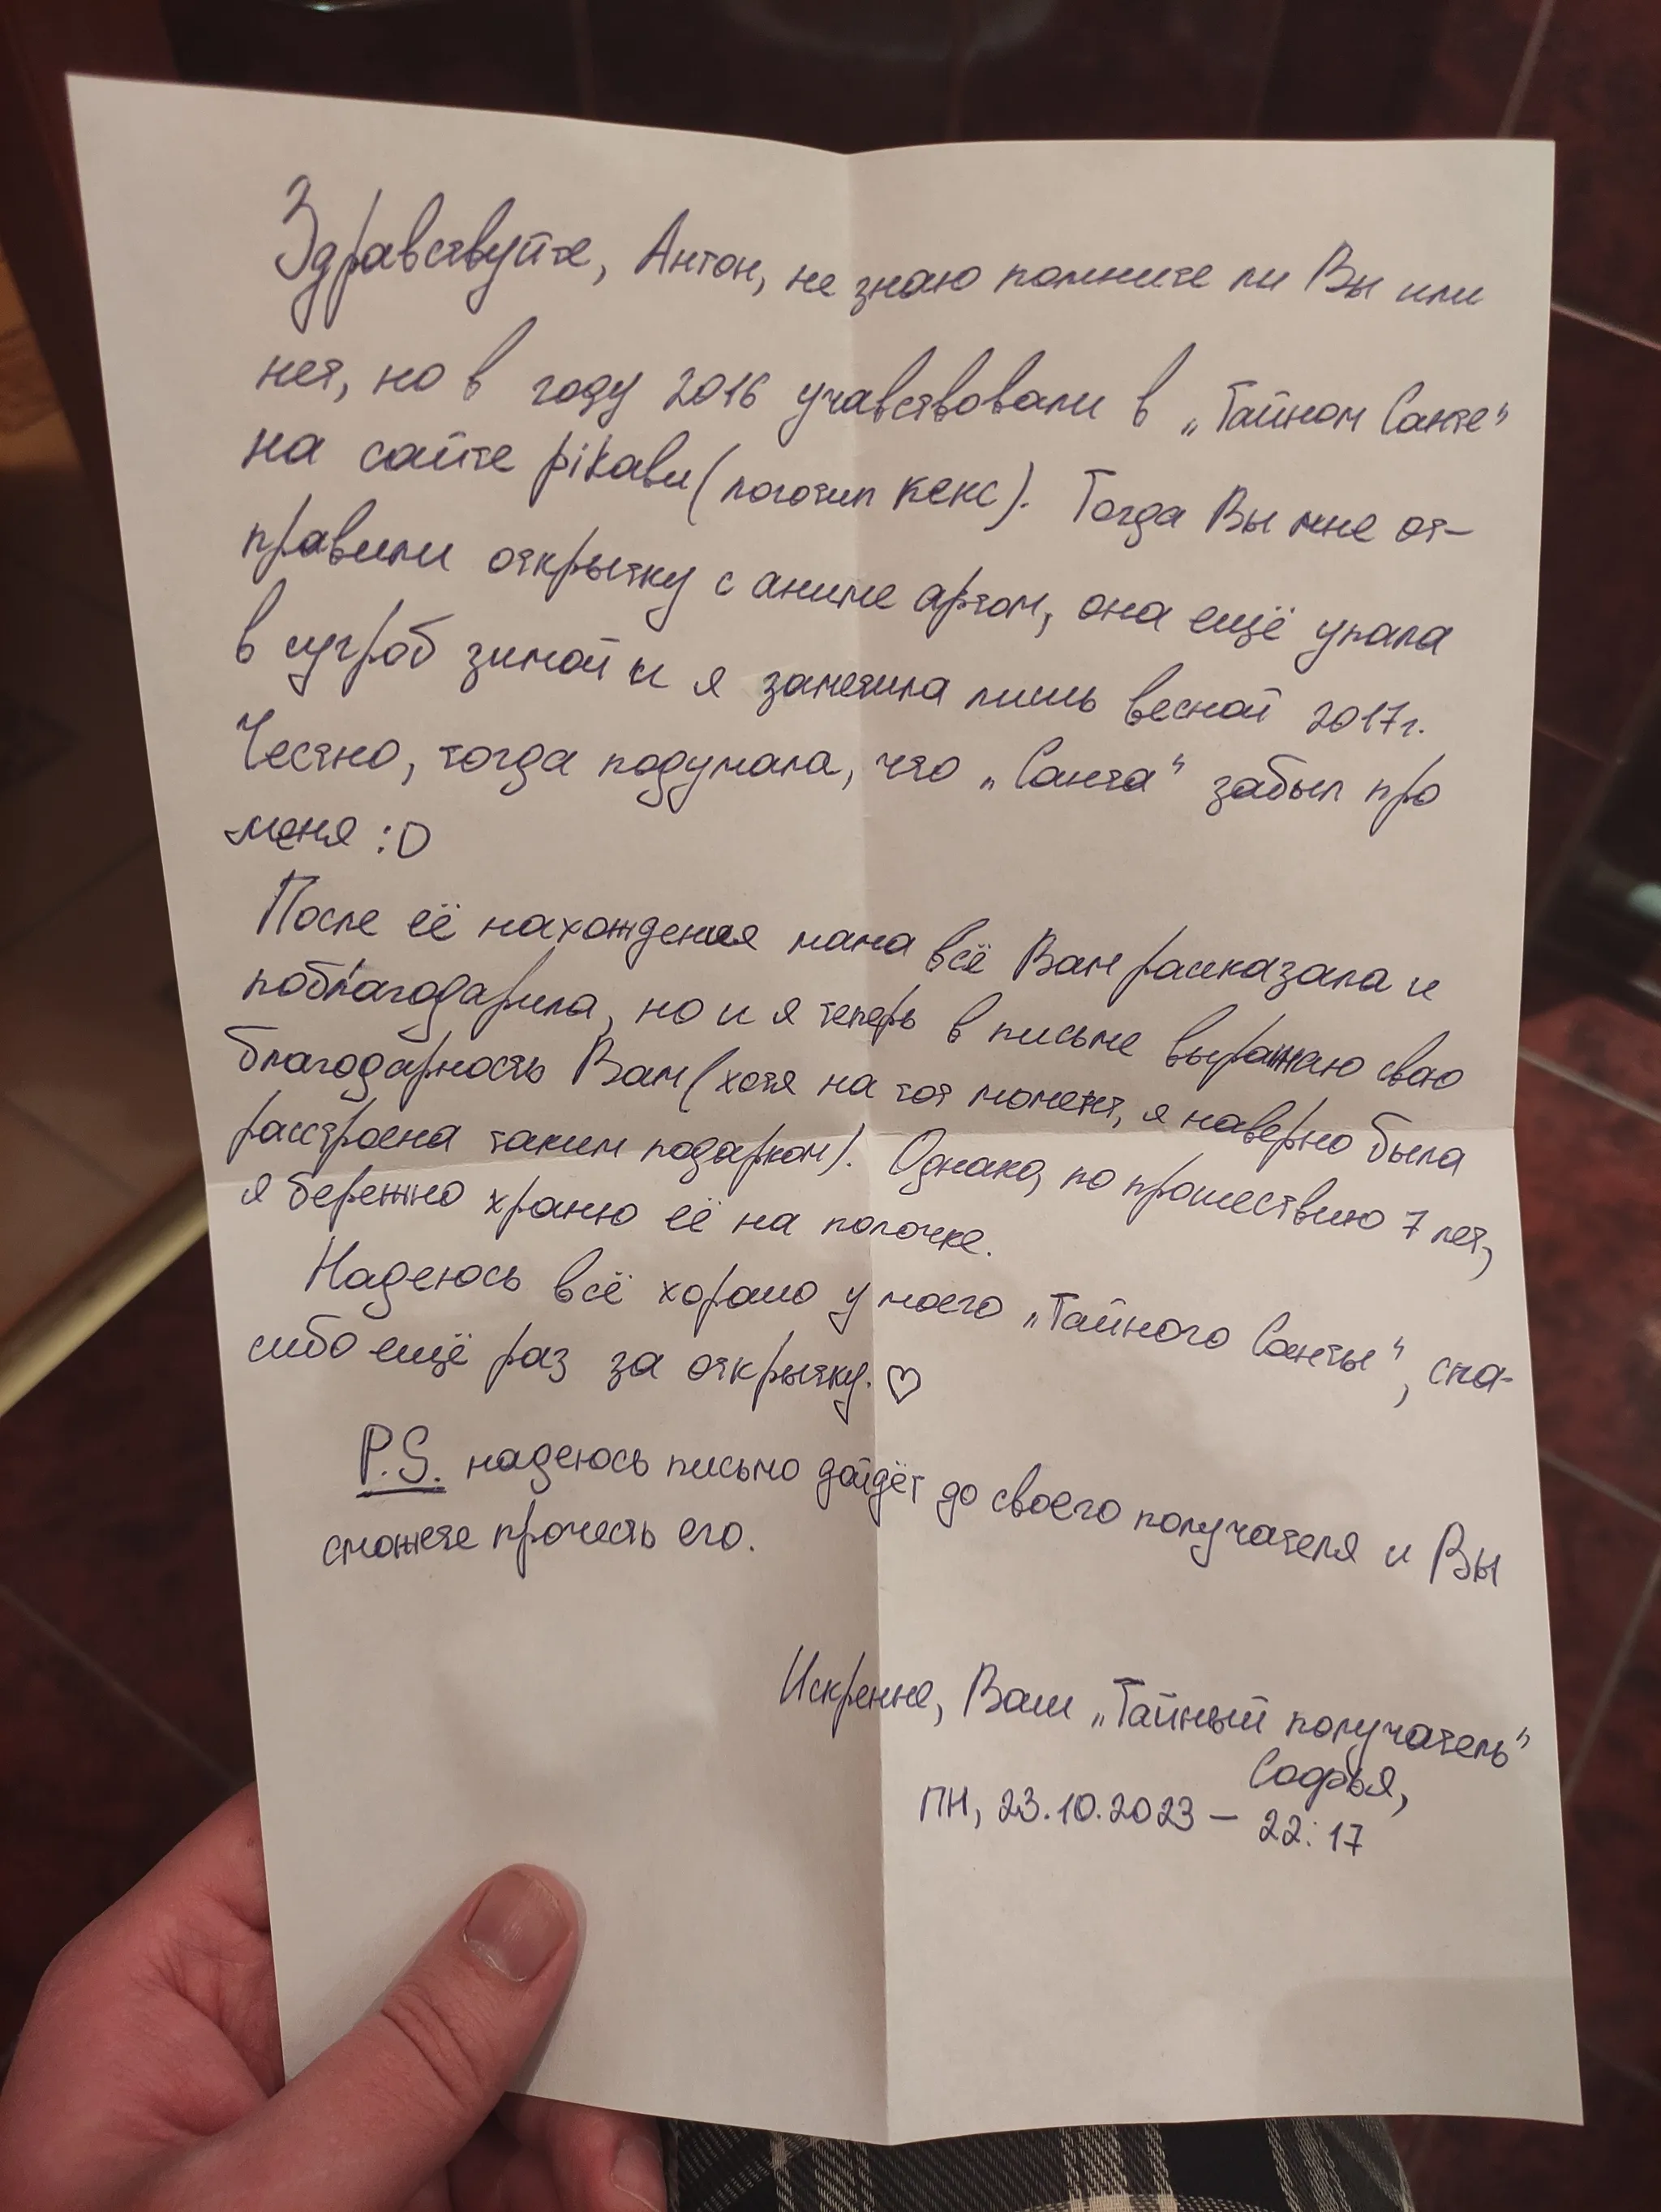 Здравствуйте, Антон, не знаю помните ли Вы или
нет, но в году 2016 учавствовали в „Тайном Санте"
на сайте pikabu (логотип кекс). Тогда Вы мне от-
правили открытку с аниме артом, она ещё упала
в сугроб зимой и я заметила лишь весной 2017г.
Честно, тогда подумала, что „Санта" забыл про
меня :D
После её нахождения мама всё Вам рассказала и
поблагодарила, но и я теперь в письме выражаю свою
благодарность Вам (хотя на тот момент, я наверно была
расстроена таким подарком). Однако, по прошествию 7 лет,
я бережно храню её на полочке.
Надеюсь всё хорошо у моего „Тайного Санты", спа-
сибо ещё раз за открытку. ♡
P.S. надеюсь письмо дойдёт до своего получателя и Вы
сможете прочесть его.
Искренне, Ваш „Тайный получатель"
Софья,
ПН, 23.10.2023 – 22:17